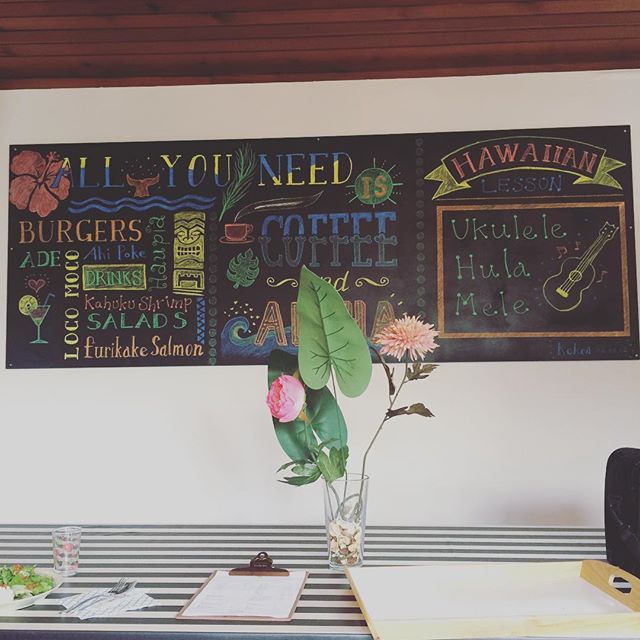 ALL YOU NEED IS
BURGERS
ADE
LOCO MOCO
Ahi Poke
Haupia
DRINKS
Kahuku Shrimp
SALADS
Furikake Salmon
COFFEE
and
ALOHA
HAWAIIAN
LESSON
Ukulele
Hula
Mele